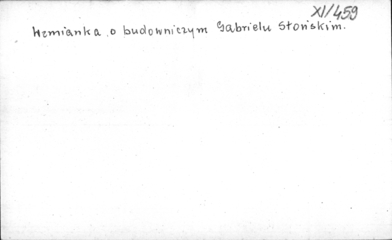 XI/459
Wzmianka o budowniczym Gabrielu Słońskim.